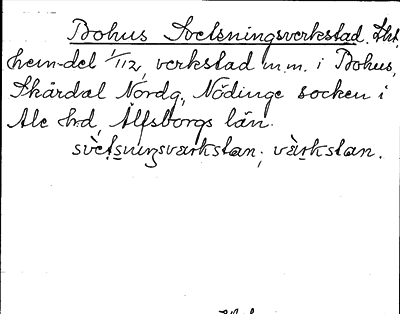 Bohus Svetsningsverkstad. Skt.
hem-del 1/112, verkstad m.m. i Bohus,
Skårdal Nordg, Nödinge socken i
Ale hd, Älfsborgs län.
svètsnıŋsvärkstan; värkstan.